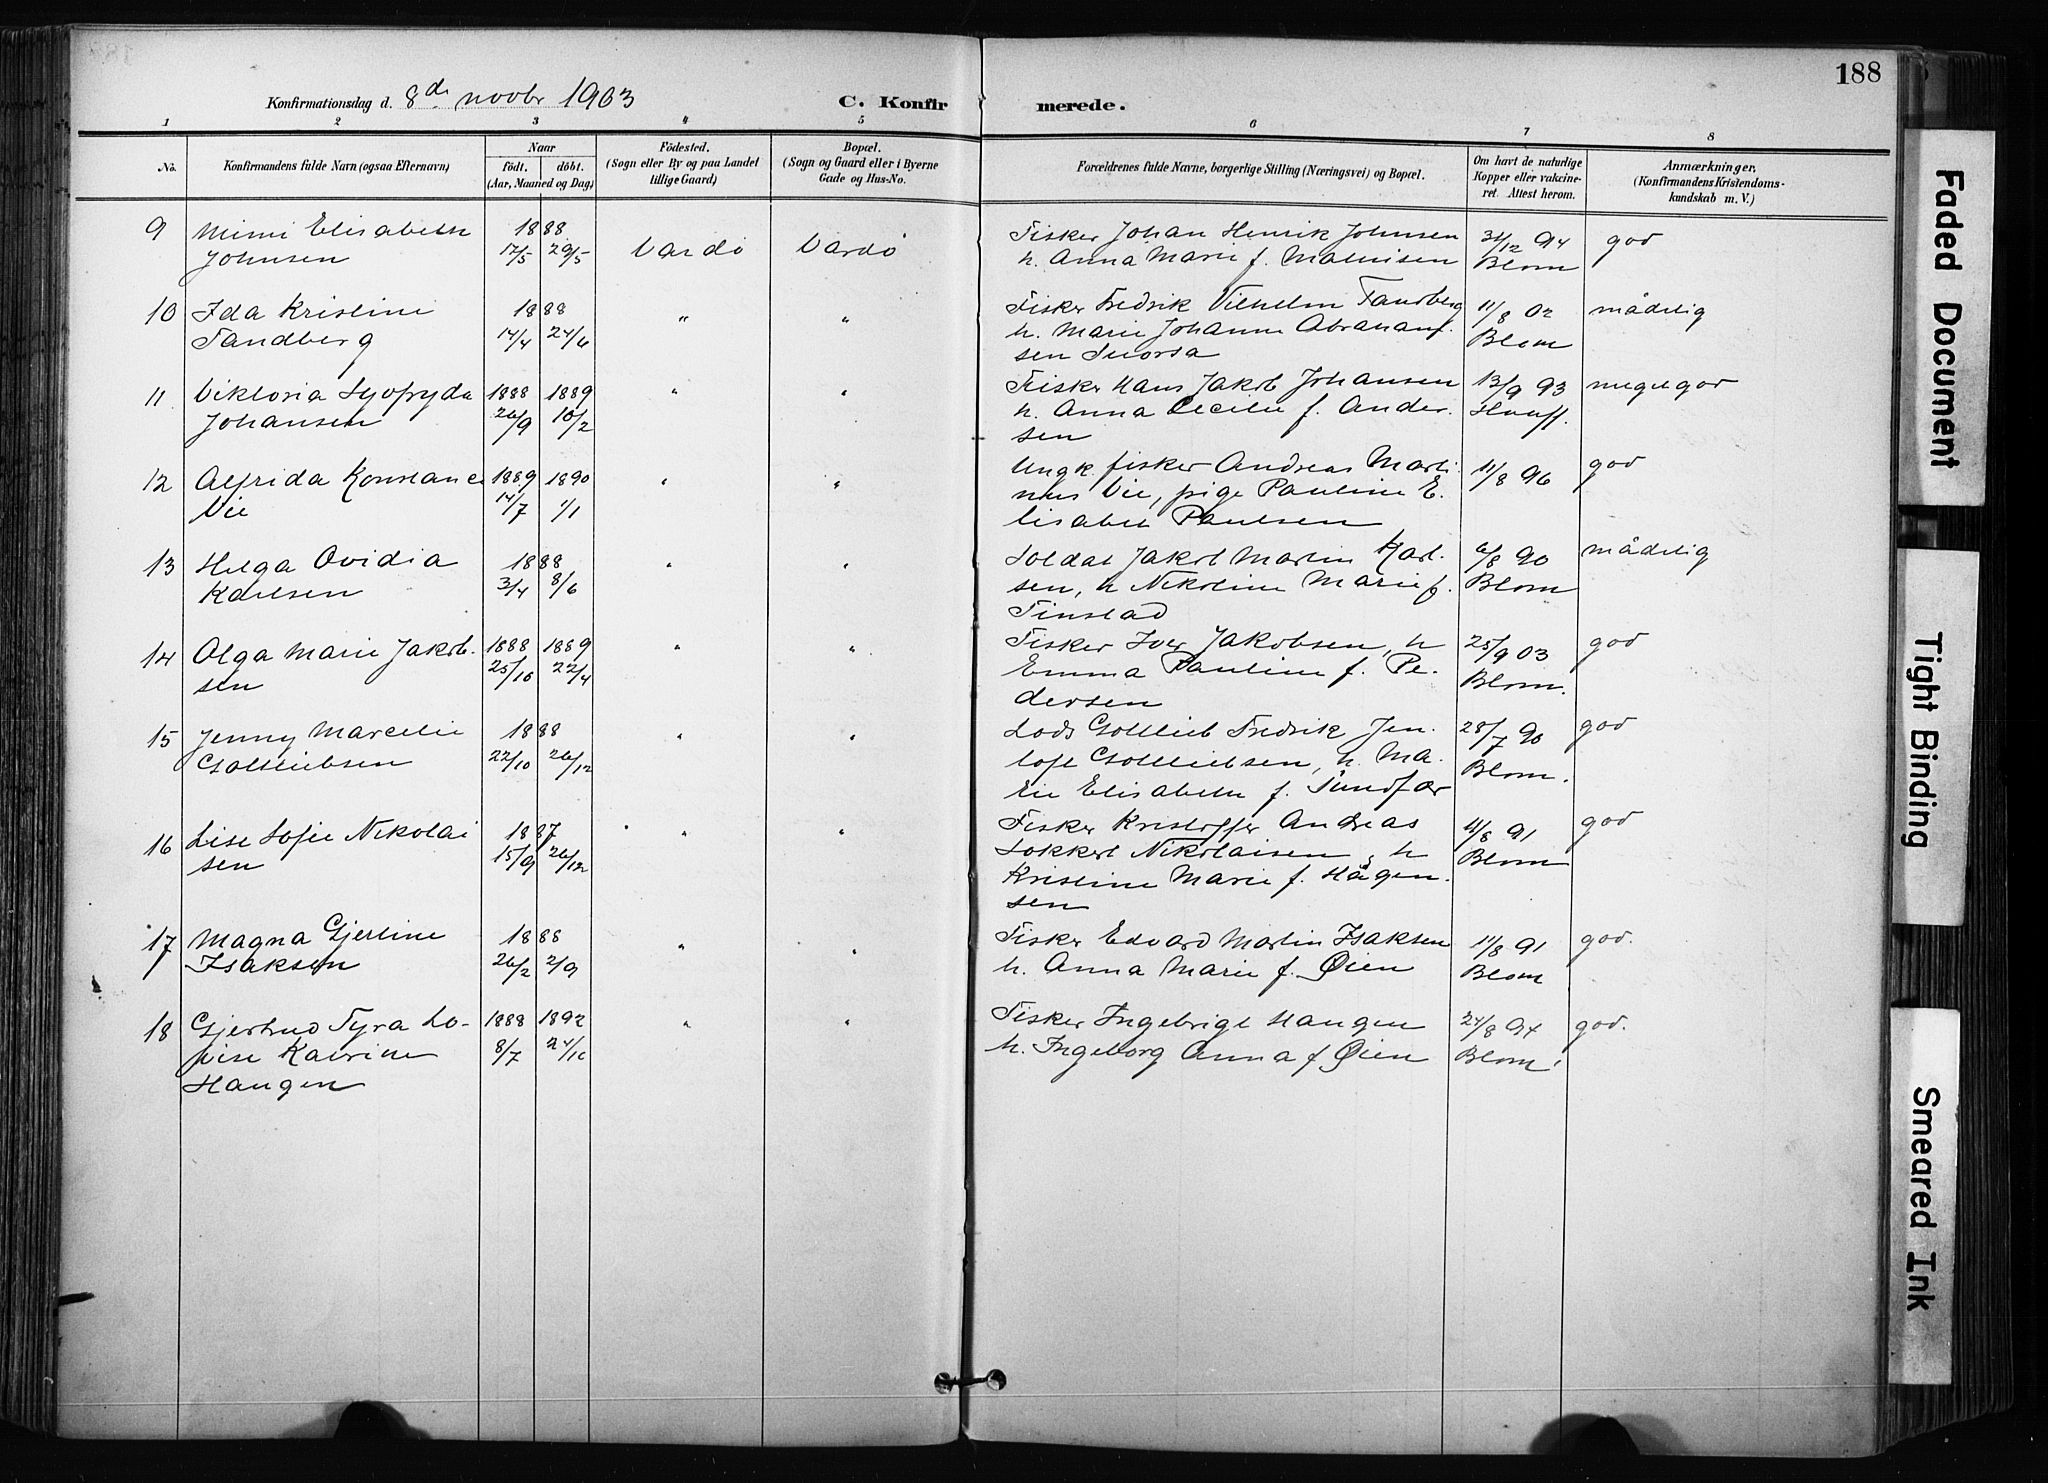 188
Konfirmationsdag d. 8de novbr 1903
C. Konfirmerede.
1 2 3 4 5 6 7 8
No.
Konfirmandens fulde Navn (ogsaa Efternavn)
Naar
født. døbt.
(Aar, Maaned og Dag)
Fødested.
(Sogn eller By og paa Landet
tillige Gaard)
Bopæl.
(Sogn og Gaard eller i Byerne
Gade og Hus-No.
Forældrenes fulde Navne, borgerlige Stilling (Næringsvei) og Bopæl.
Om havt de naturlige
Kopper eller vakcine-
ret. Attest herom.
Anmærkninger,
(Konfirmandens Kristendoms-
kundskab m. V.)
9 Mimi Elisabeth 1888 Fisker Johan Henrik Johnsen 31/12 94 god
Johnsen 17/5 29/5 Vardø Vardø h. Anna Marie f. Mathisen Blom
10 Ida Kristine 1888 " " Fisker Fredrik Vilhelm Tandberg 11/8 02 mådelig
Tandberg 14/4 24/6 h. Marie Johanne Abraham-
sen Blom
11 Viktoria 1888 1889 " " Fisker Hans Jakob Johansen 13/9 93 meget god
Johansen 26/9 10/2 h. Anna Cecilie f. Ander-
sen
12 Alfrida Konstance 1889 1890 " " Ungk. fisker Andreas Marti- 11/8 96 god
Vie 14/7 1/1 nus Vie, pige Pauline E-
lisabet Paulsen
13 Helga Ovidia 1888 " " Soldat Jakob Martin Karl- 6/8 90 mådelig
Karlsen 3/4 8/6 sen, h Nikoline Marie f. Blom
Finstad
14 Olga Marie Jakob- 1888 1889 " " Fisker Iver Jakobsen, h 25/9 03 god
sen 25/10 22/4 Emma Pauline f. Pe- Blom.
dersen
15 Jenny Marcelie 1888 " " Lods Gottlieb Fredrik Jen- 28/7 90 god
Gottliebsen 22/10 26/12 toft Gottliebsen, h. Ma- Blom.
rie Elisabeth f. Sundfær
16 Lise Sofie Nikolai 1887 " " Fisker Kristoffer Andreas 11/8 91 god
sen 15/9 26/12 Lokkert Nikolaisen, h Blom
Kristine Marie f. Hågen-
sen
17 Magna Gjertine 1888 " " Fisker Edvard Martin Isaksen 11/8 91 god.
Isaksen 26/2 2/9 h. Anna Marie f. Øien Blom
18 Gjertrud Tyra Lo- 1888 1892 " " Fisker Ingebrigt Haugen 24/8 94 god.
vise Katrine 8/7 24/10 h. Ingeborg Anna f Øien Blom.
Haugen
Faded Document
Tight Binding
Smeared Ink